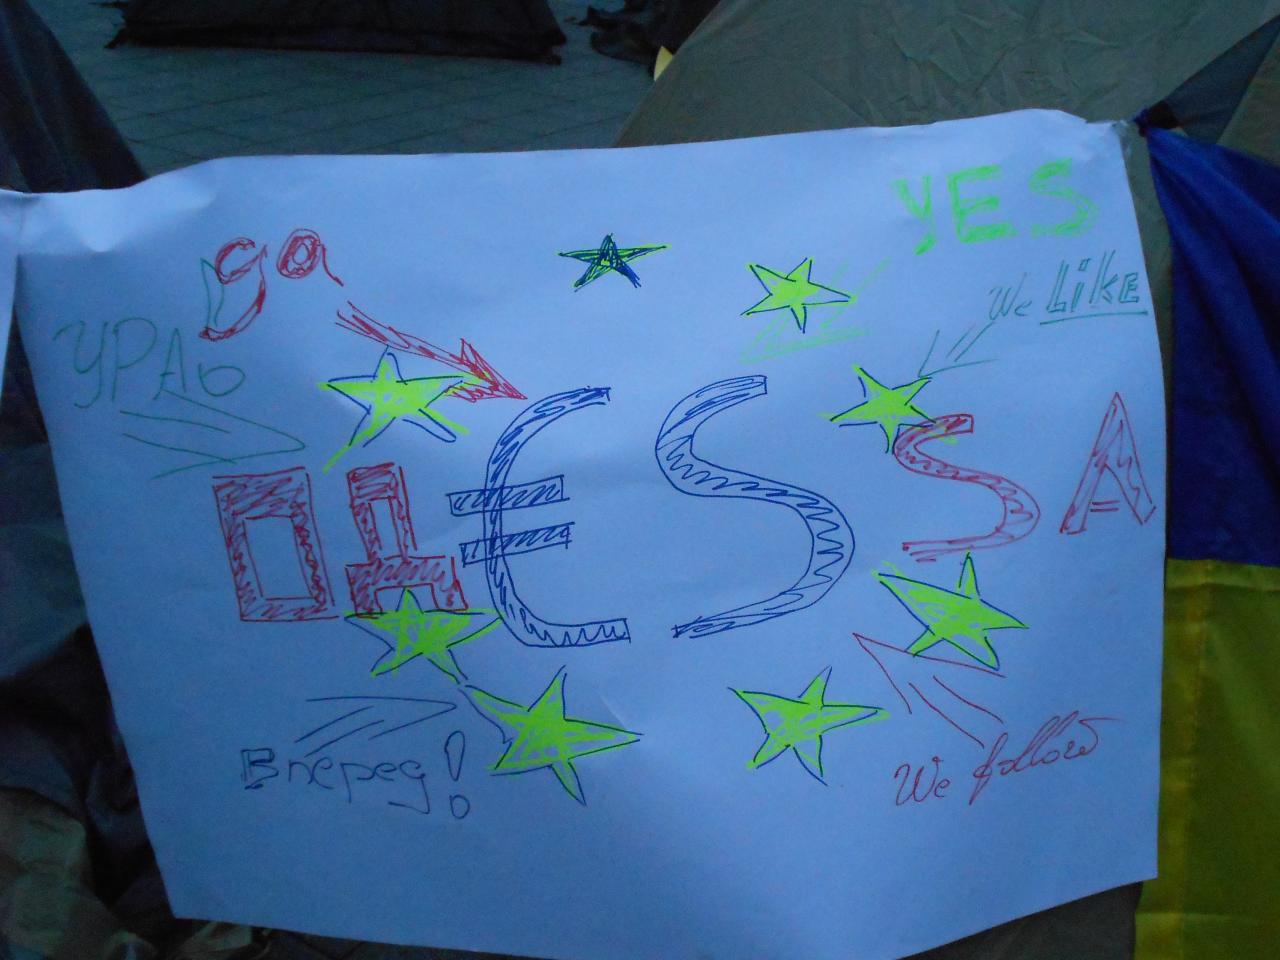 YES
да
We Like
УРАЬ
ОД€SSA
Вперед!
We follow